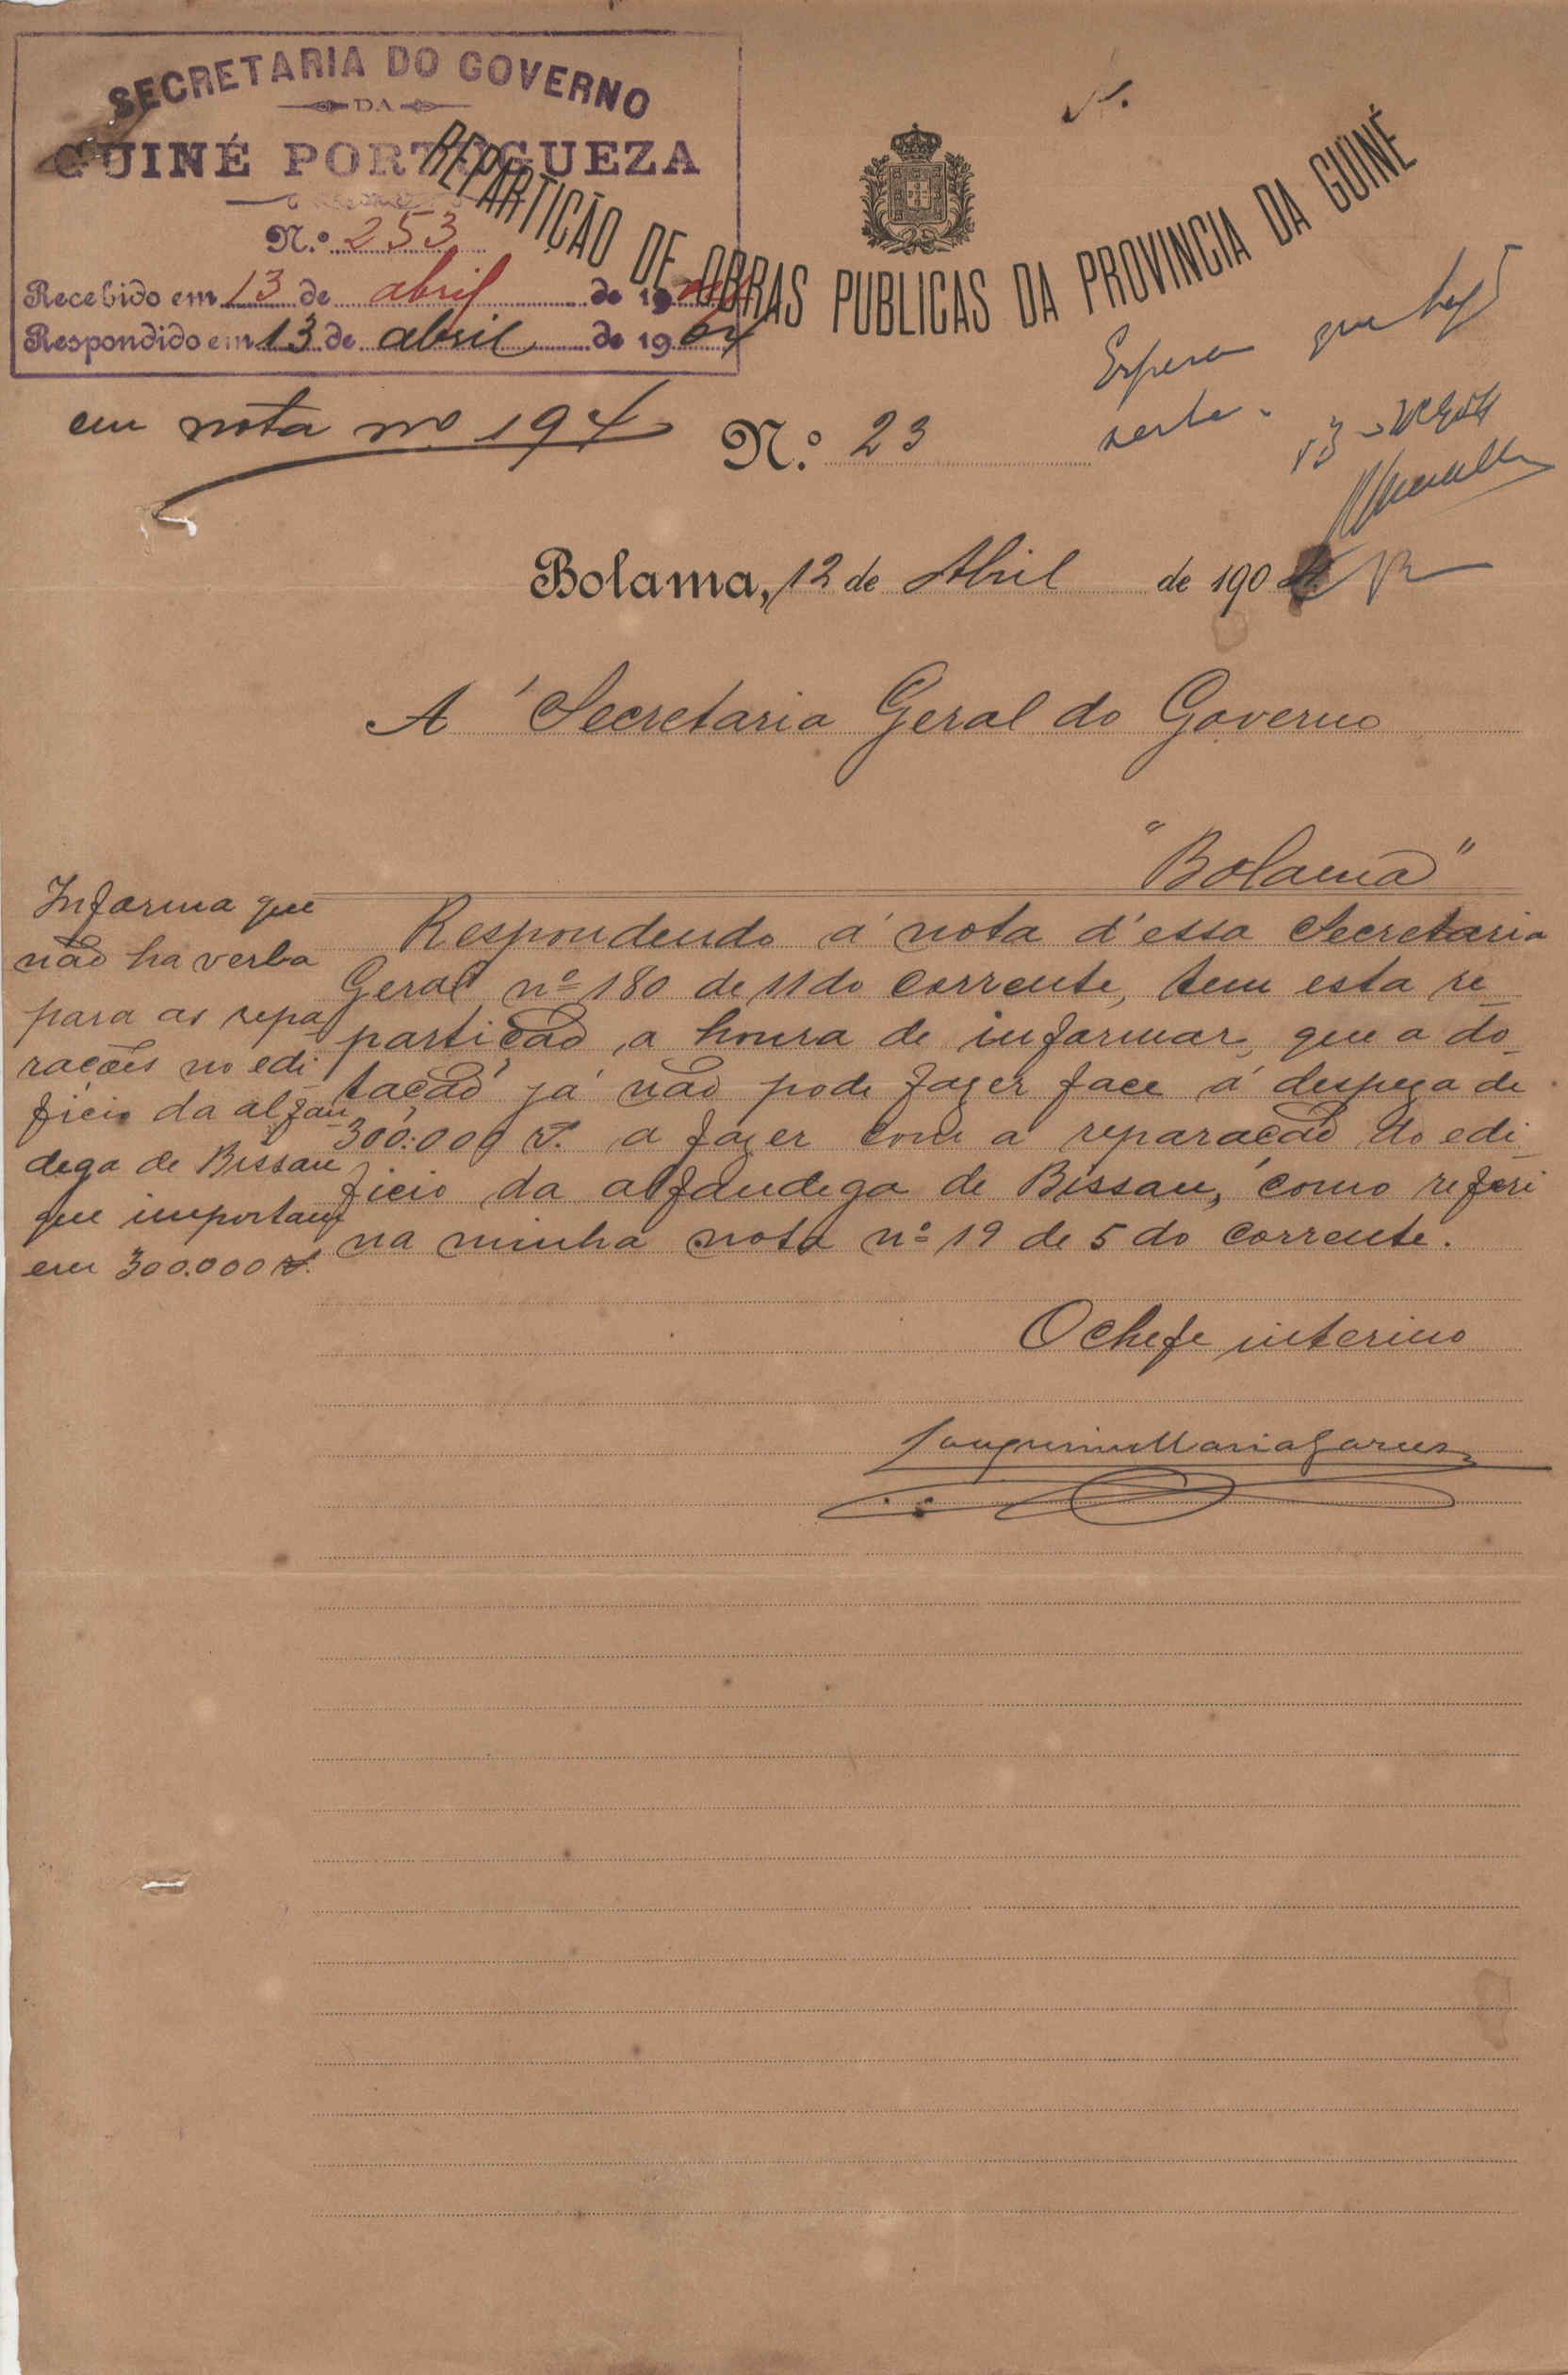 SECRETARIA DO GOVERNO
DA
GUINÉ PORTUGUEZA
N.º 253
Recebido em 13 de abril de 19
Respondido em 13 de abril de 1904
em nota nº 194
REPARTIÇÃO DE OBRAS PUBLICAS DA PROVINCIA DA GUINÉ
Espera que haja
verba.
N.º 23
Bolama, 12 de Abril de 1904
A' Secretaria Geral do Governo
"Bolama"
Informa que
não ha verba
para as repa
rações no edi
ficio da alfan
dega de Bissau
que importam
em 300.000 rs.
Respondendo á nota d'essa Secretaria
Geral nº 180 de 11 do corrente, tem esta re
partição, a honra de informar, que a do
tação já não pode fazer face á despeza de
300:000 rs. a fazer com a reparação do edi
ficio da alfandega de Bissau, como referi
na minha nota nº 19 de 5 do corrente.
O chefe interino